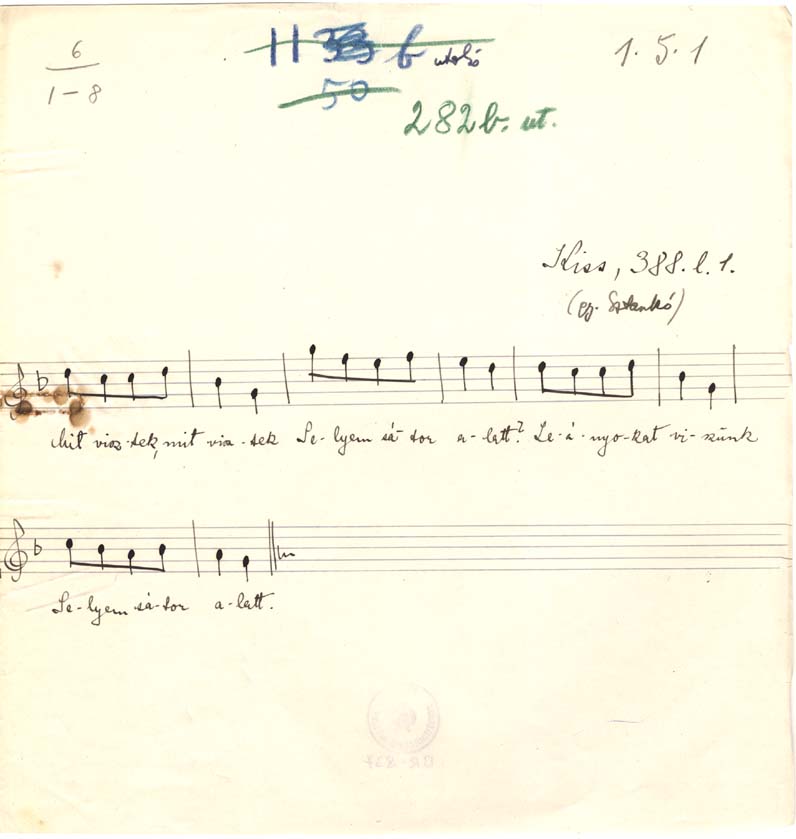 6
1-8
11 b utolsó
50
1.5.1
282b. ut.
Kiss, 388. l. 1.
(gy. Sztankó)
Mit visz-tek, mit visz-tek Se-lyem sá-tor a-latt? Le-á-nyo-kat vi-szünk
Se-lyem sá-tor a-latt.